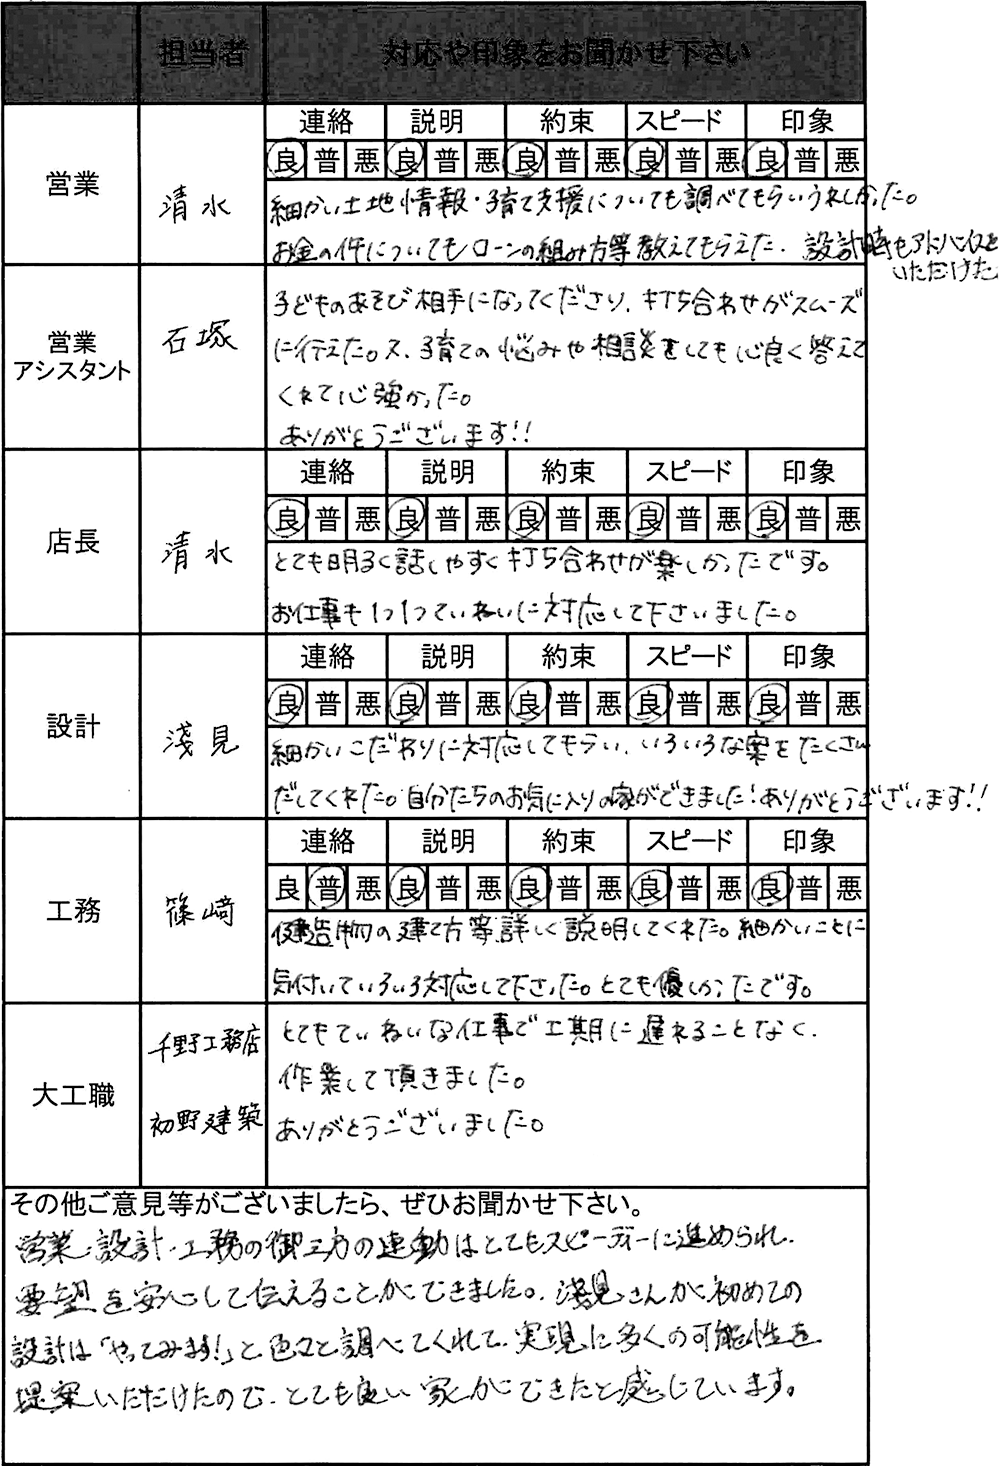 担当者 対応や印象をお聞かせ下さい
営業 清水
連絡 説明 約束 スピード 印象
良 普 悪 良 普 悪 良 普 悪 良 普 悪 良 普 悪
細かい土地情報・子育て支援についても調べてもらいうれしかった。
お金の件についてもローンの組み方等教えてもらえた．設計時もアドバイスを
いただけた
営業
アシスタント
石塚
子どものあそび相手になってくださり、打ち合わせがスムーズ
に行えた。又、子育ての悩みや相談をしても心良く答えて
くれて心強かった。
ありがとうございます!!
店長 清水
連絡 説明 約束 スピード 印象
良 普 悪 良 普 悪 良 普 悪 良 普 悪 良 普 悪
とても明るく話しやすく打ち合わせが楽しかったです。
お仕事も1つ1つていねいに対応して下さいました。
設計 淺見
連絡 説明 約束 スピード 印象
良 普 悪 良 普 悪 良 普 悪 良 普 悪 良 普 悪
細かいこだわりに対応してもらい、いろいろな案をたくさん
だしてくれた。自分たちのお気に入りの家ができました!ありがとうございます!!
工務 篠﨑
連絡 説明 約束 スピード 印象
良 普 悪 良 普 悪 良 普 悪 良 普 悪 良 普 悪
建造物の建て方等詳しく説明してくれた。細かいことに
気付いていろいろ対応して下さった。とても優しかったです。
大工職
千野工務店
初野建築
とてもていねいな仕事で工期に遅れることなく、
作業して頂きました。
ありがとうございました。
その他ご意見等がございましたら、ぜひお聞かせ下さい。
営業・設計・工務の御三方の連動はとてもスピーディーに進められ、
要望を安心して伝えることができました。淺見さんが初めての
設計は「やってみます!」と色々と調べてくれて、実現に多くの可能性を
提案いただけたので、とても良い家ができたと感じています。